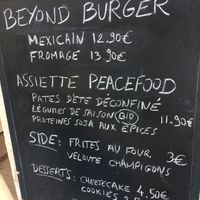 BEYOND BURGER
MEXICAIN 12.90€
FROMAGE 13.90€
ASSIETTE PEACEFOOD
PATES D'ÉTÉ DÉCONFINÉ
LÉGUMES DE SAISON BIO
11.90€
PROTEINES SOJA AUX EPICES
SIDE: FRITES AU FOUR,
3€
VELOUTE CHAMPIGONS
DESSERTS: CHEESECAKE 4.50€
COOKIES